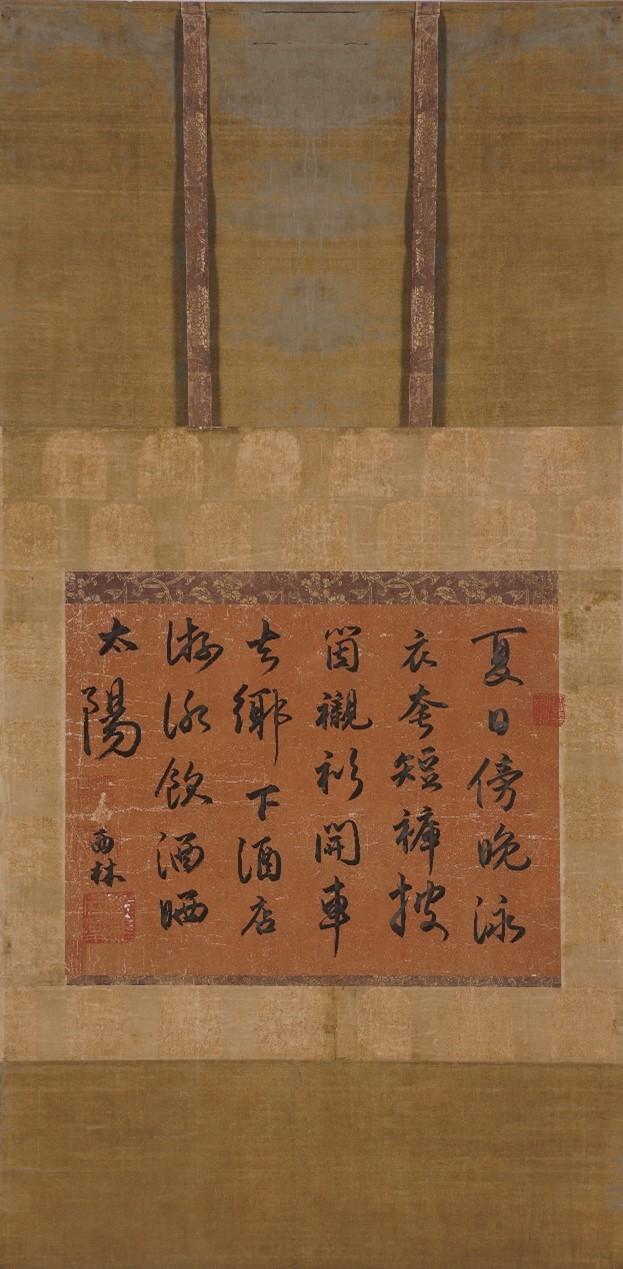 夏日傍晚泳
衣套短褲披
箇襯衫開車
去鄉下酒店
游泳飲酒晒
太陽
林